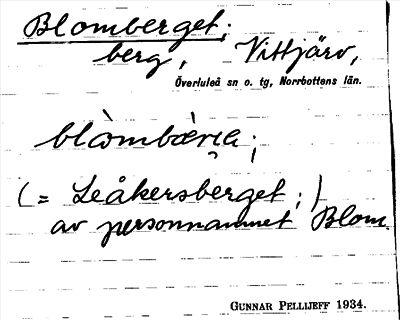 Blomberget;
berg, Vittjärv,
Överluleå sn o. tg, Norrbottens län.
(= Leåkersberget;)
av personnamnet Blom.
GUNNAR PELLIJEFF 1934.